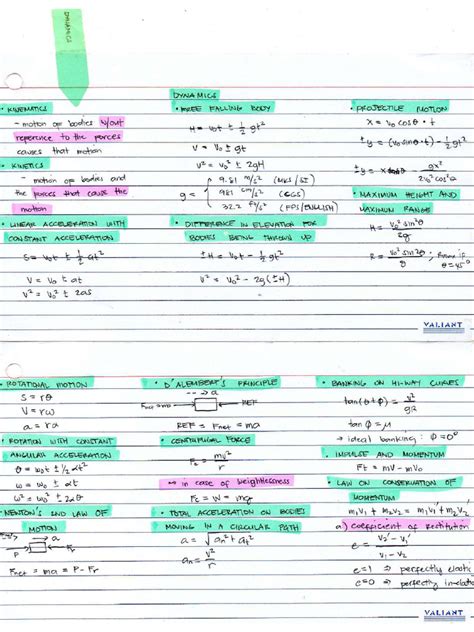 DYNAMICS
DYNAMICS
• KINEMATICS
- motion of bodies w/out
reference to the forces
causes that motion
• KINETICS
- motion of bodies and
the forces that cause the
motion
• LINEAR ACCELERATION WITH
CONSTANT ACCELERATION
S = V₀t ± ½ at²
V = V₀ ± at
V² = V₀² ± 2as
• FREE FALLING BODY
H = V₀t ± ½ gt²
V = V₀ ± gt
V² = V₀² ± 2gH
g = { 9.81 m/s² (MKS/SI)
981 cm/s² (CGS)
32.2 ft/s² (FPS/ENGLISH)
• DIFFERENCE IN ELEVATION FOR
BODIES BEING THROWN UP
±H = V₀t - ½ gt²
V² = V₀² - 2g(±H)
• PROJECTILE MOTION
X = V₀ cosθ • t
±y = (V₀ sinθ • t) - ½ gt²
±y = x tanθ - gx² / 2V₀² cos²θ
• MAXIMUM HEIGHT AND
MAXIMUM RANGE
H = V₀² sin²θ / 2g
R = V₀² sin2θ / g ; Rmax if
θ = 45°
VALIANT
• ROTATIONAL MOTION
S = rθ
V = rω
a = rα
• ROTATION WITH CONSTANT
ANGULAR ACCELERATION
θ = ω₀t ± ½ αt²
ω = ω₀ ± αt
ω² = ω₀² ± 2αθ
• NEWTON'S 2ND LAW OF
MOTION
→ a
P → Fr
Fnet = ma = P - Fr
• D'ALEMBERT'S PRINCIPLE
→ a
Fnet = ma → ← REF
REF = Fnet = ma
• CENTRIFUGAL FORCE
Fc = mv² / r
→ in case of weightlessness
Fc = W = mg
• TOTAL ACCELERATION ON BODIES
MOVING IN A CIRCULAR PATH
a = √an² + at²
an = v² / r
• BANKING ON HI-WAY CURVES
tan(θ + φ) = v² / gr
tan φ = μ
→ ideal banking : φ = 0°
• IMPULSE AND MOMENTUM
Ft = mV - mV₀
• LAW ON CONSERVATION OF
MOMENTUM
m₁V₁ + m₂V₂ = m₁V₁' + m₂V₂'
a) coefficient of restitution
e = V₂' - V₁' / V₁ - V₂
e=1 ⇒ perfectly elastic
e=0 ⇒ perfectly inelastic
VALIANT